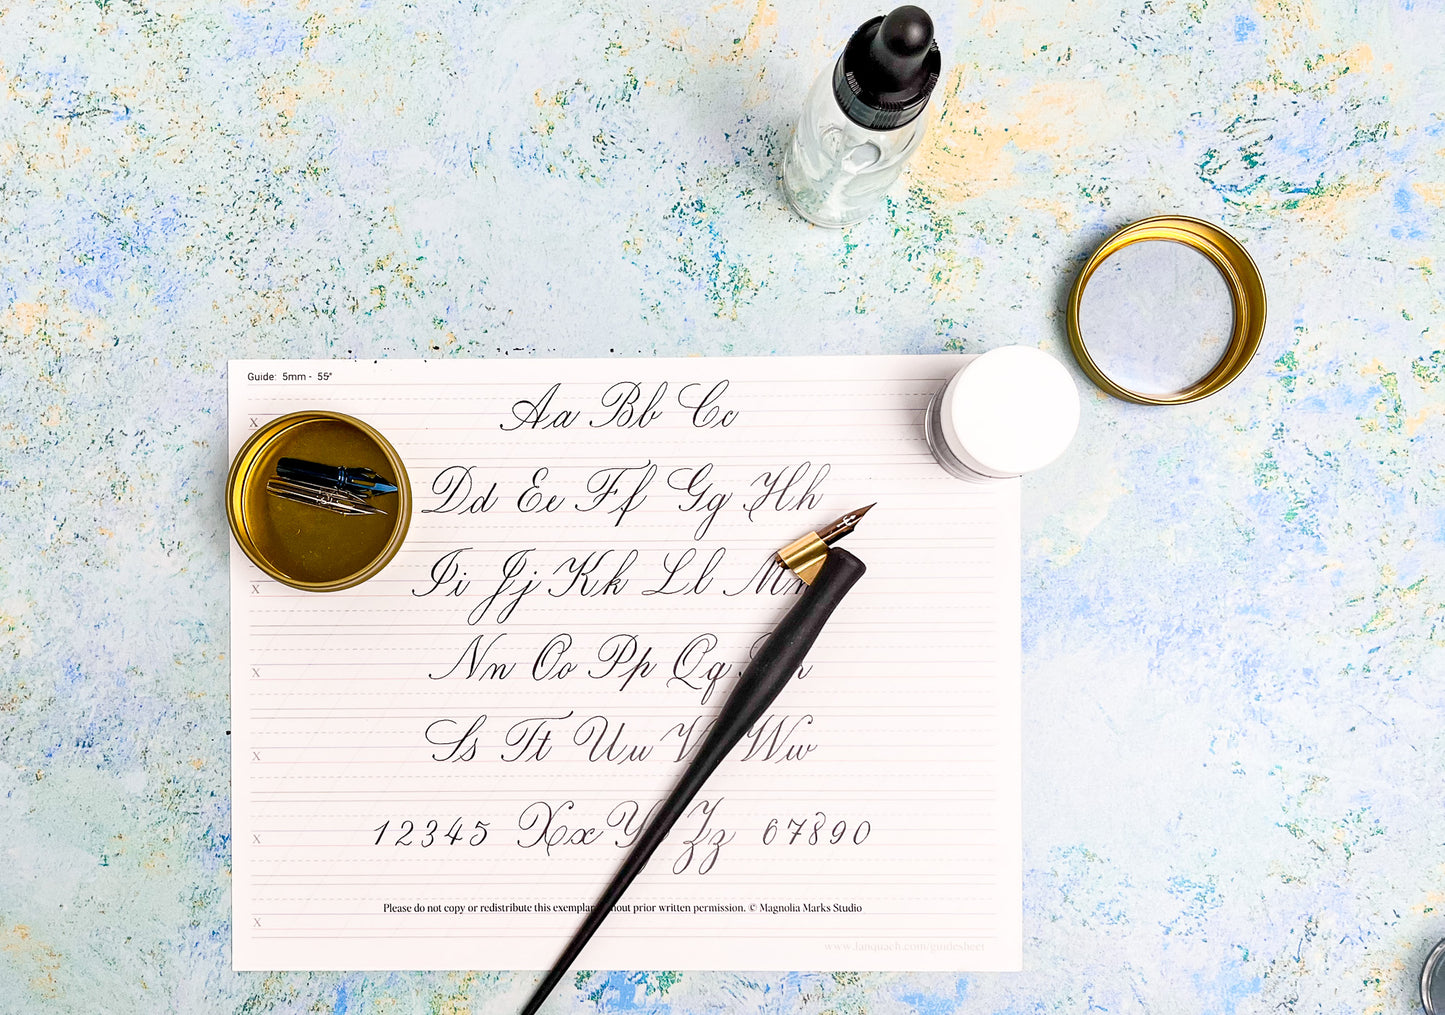 Guide: 5mm - 55°
x
Aa Bb Cc
Dd Ee Ff Gg Hh
x
Ii Jj Kk Ll Mm
x
Nn Oo Pp Qq
x
Ss Tt Uu V Ww
x
12345 Xx Y Zz 67890
x
Please do not copy or redistribute this exemplar without prior written permission. © Magnolia Marks Studio
www.lanquach.com/guidesheet